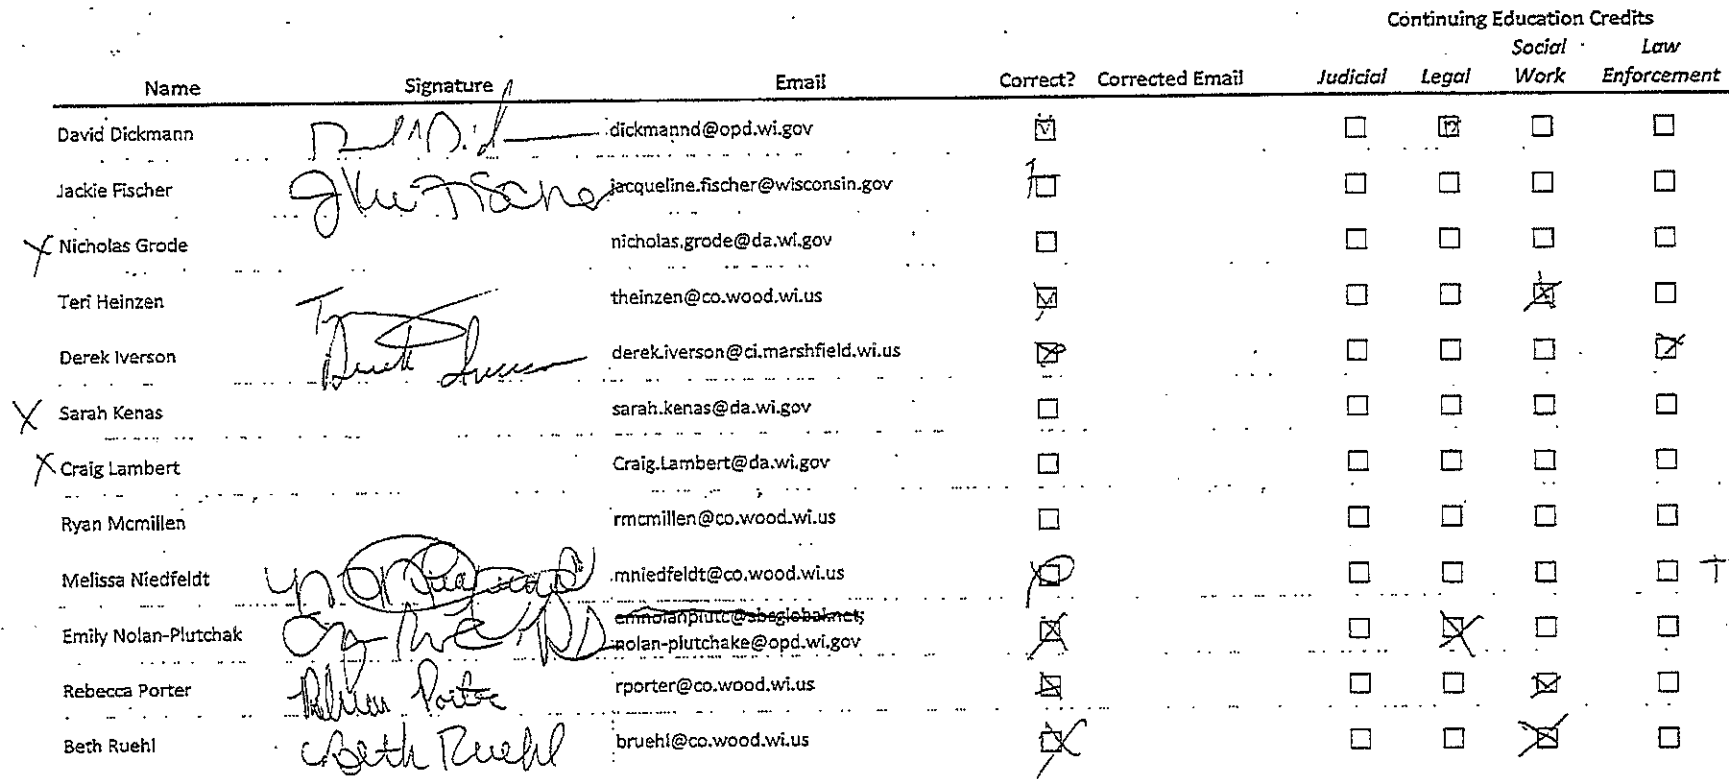 Continuing Education Credits
Social Law
Name Signature Email Correct? Corrected Email Judicial Legal Work Enforcement
David Dickmann dickmannd@opd.wi.gov
Jackie Fischer Jackie Fischer jacqueline.fischer@wisconsin.gov
X Nicholas Grode nicholas.grode@da.wi.gov
Teri Heinzen theinzen@co.wood.wi.us
Derek Iverson Derek Iverson derek.iverson@ci.marshfield.wi.us
X Sarah Kenas sarah.kenas@da.wi.gov
X Craig Lambert Craig.Lambert@da.wi.gov
Ryan Mcmillen rmcmillen@co.wood.wi.us
Melissa Niedfeldt mniedfeldt@co.wood.wi.us
emnolanplutc@sbcglobal.net;
Emily Nolan-Plutchak nolan-plutchake@opd.wi.gov
Rebecca Porter Porter rporter@co.wood.wi.us
Beth Ruehl Beth Ruehl bruehl@co.wood.wi.us